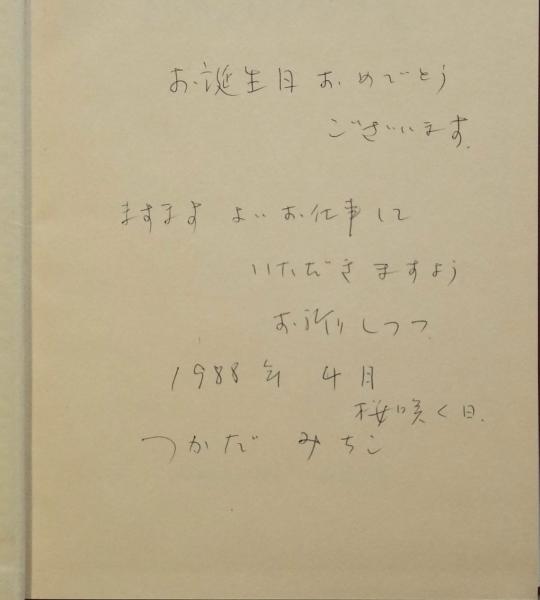 お誕生日おめでとう
ございます。
ますますよいお仕事して
いただきますよう
お祈りしつつ
1988年 4月
桜咲く日。
つかだ みちこ